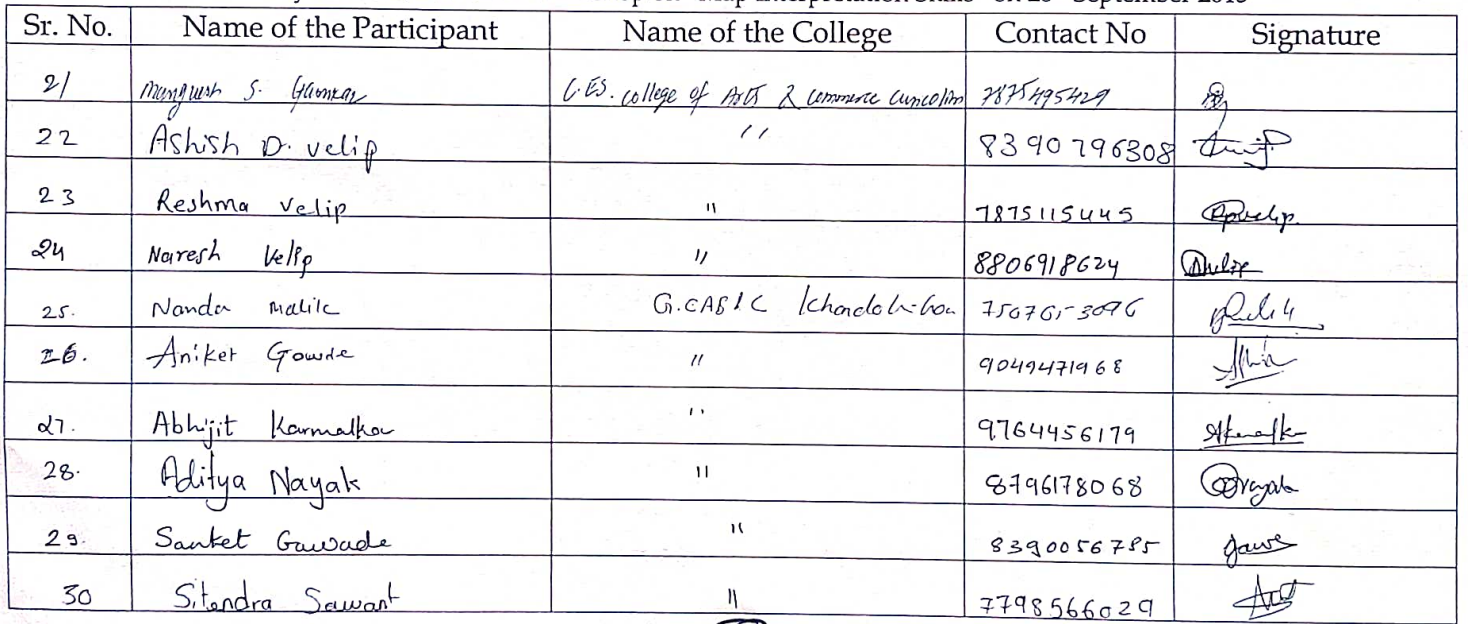 Map Interpretation Skills
September 2015
Sr. No. Name of the Participant Name of the College Contact No Signature
21 Manguesh S. Gaonkar C.ES. college of Arts & commerce cuncolim 7875495429
22 Ashish D. velip '' 8390796308
23 Reshma Velip '' 7875115445
24 Naresh Velip '' 8806918624
25. Nanda Malik G.CAS&C Khandola-Goa 750765-3096
26. Aniket Gowde '' 9049471968
27. Abhijit Karmalkar '' 9764456179
28. Aditya Nayak '' 8796178068
29. Sanket Gawade '' 8390056785
30 Sitendra Sawant '' 7798566029